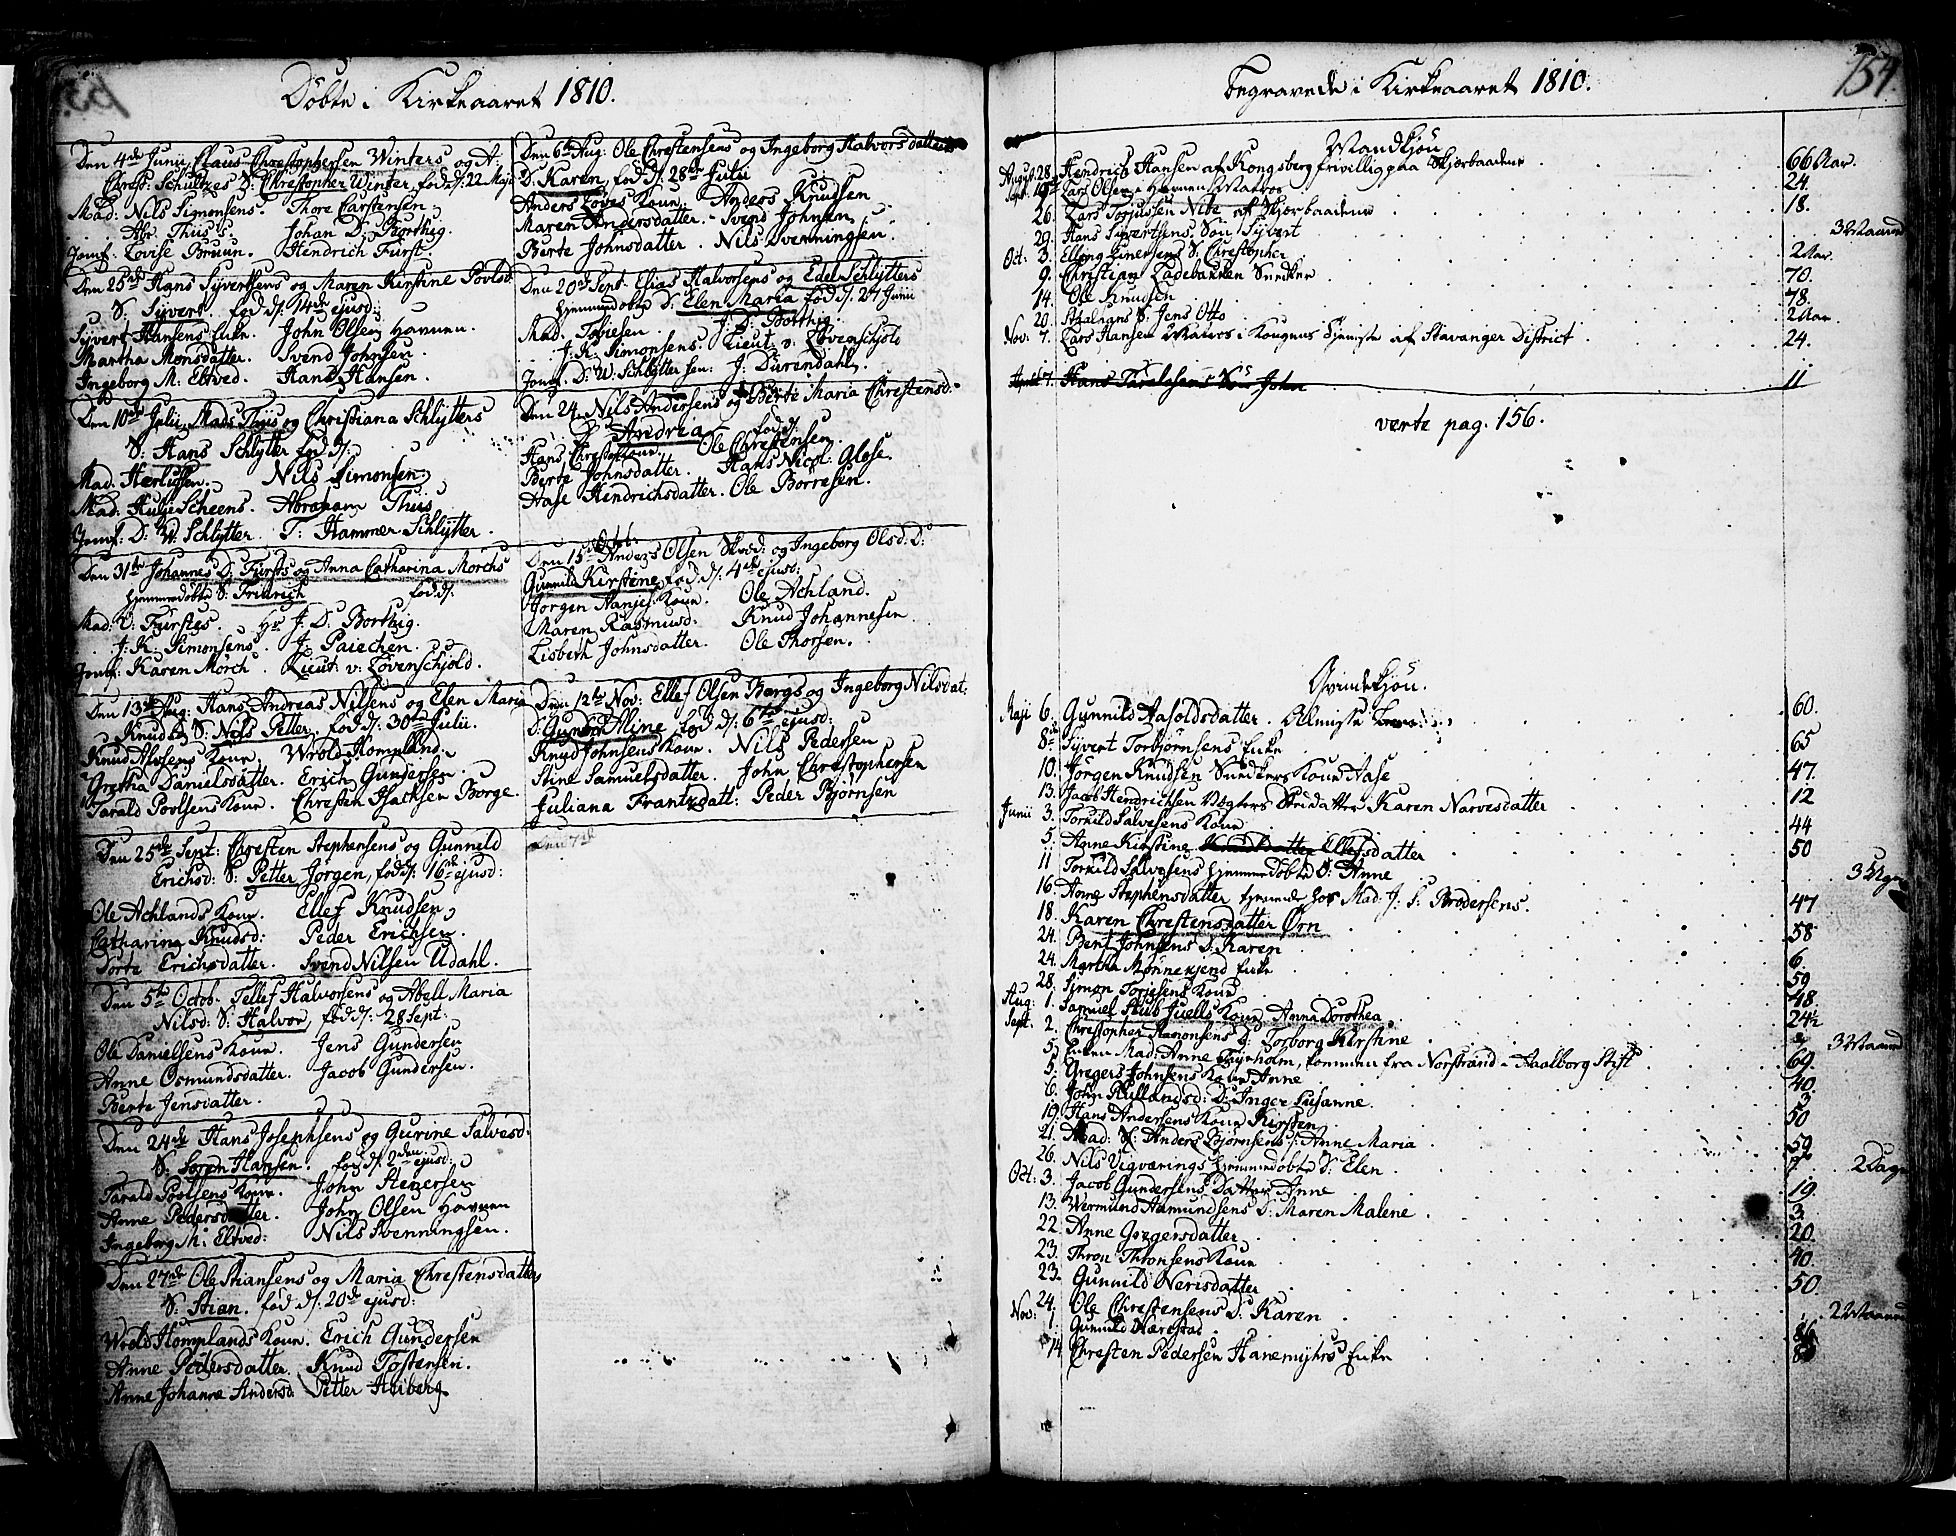 Döbte i Kirkeaaret 1810.
Den 4de Junii Claus Christophersen Winters og A:
Christ: Schultzes S: Christopher Winter, fød d: 22 Maji
Mad: Nils Simonsens. Thore Carstensen,
Abr. Thuis's. Johan D: Borthig.
Jomf: Lovise Bruun. Hendrich Fürst.
Den 25de Hans Syvertsens og Maren Kirstine Povlsd:
S: Syvert. fød d: 14de ejusd:
Syvert Hansens Enke. John Olsen Havnen.
Martha Monsdatter. Svend Johnsen.
Ingeborg M: Eltved. Hans Hansen.
Den 10de Julii Mads Thiis og Christiana Schlytters
S: Hans Schlytter fød d:
Mad. Herlufsen. Nils Simonsen.
Mad. Scheens. Abraham Thuis
Jomf: D: W: Schlytter. T: Hammer Schlytter.
Den 31te Johannes D: Fürsts og Anna Catharina Mörchs
hjemmedöbte S: Fridrich fød d:
Mad: D: Fürstes. Hr J: D: Borthig.
J: K: Simonsens. J: Paiechen.
Jomf: Karen Mörch. Lieut: v: Lövenschjold.
Den 13de Aug: Hans Andreas Nilsens og Elen Maria
Knudsd: S: Nils Petter, fød d: 30te Julii.
Knud Alfsens Kone. Wrold Kompland.
Gretha Danielsdatter. Erich Gundersen.
Tarald Povlsens Kone. Christen Isachsen Borge.
Den 25de Sept: Christen Stephensens og Gunneld
Erichsd: S: Petter Jörgen, fød d: 16de ejusd:
Ole Achlands Kone. Ellef Knudsen,
Catharina Knudsd: Peder Erichsen.
Dorte Erichsdatter. Svend Nilsen Udahl.
Den 5te Octob. Tellef Halvorsens og Abell Maria
Nilsd: S: Halvor, fød d: 28 Sept.
Ole Daniellsens Kone. Jens Gundersen
Anne Osmundsdatter. Jacob Gundersen.
Berte Jensdatter.
Den 24de Hans Josephsens og Gurine Salvesd:
S: Sören Hansen. fød d: 2den ejusd:
Tarald Povlsens Kone. John Stenersen
Anne Pedersdatter. John Olsen Havnen
Ingeborg M: Eltved: Nils Svenningsen.
Den 27de Ole Stiansens og Maria Christensdatters
S: Stian. fød d: 20de ejusd:
Wrold Komplands Kone. Erich Gundersen
Anne Pedersdatter. Knud Tostensen.
Anne Johanne Andersd. Petter Heiberg
Den 6te Aug: Ole Christensens og Ingeborg Halvorsdatters
D: Karen, fød d: 28de Julii
Anders Loves Kone. Anders Knudsen
Maren Andersdatter. Svend Johnsen,
Berte Johnsdatter. Nils Svenningsen.
Den 20de Sept. Elias Halvorsens og Edel Schlytters
hjemmedöbte D: Elen Maria fød d: 27 Junii
Mad: Tobiesen. J. D: Borthig.
J. K. Simonsens. Lieut: v: Lövenschjold
Jomf. D: W: Schlyttersen: J: Dürendahl.
Den 24. Nils Andersens og Berte Maria Christensd:
D: Andrea fød d:
Hans Christ: Kone. Ole Christensen.
Berte Johnsdatter. Hans Nicol: Glose.
Aase Hendrichsdatter. Ole Börresen.
Den 15de Octob. Anders Olsen Skred: og Ingeborg Olsd: D:
Gunnild Kirstine, fød d: 4de ejusd:
Jörgen Nanjes Kone. Ole Achland.
Maren Rasmusd: Knud Johannesen
Lisbeth Johnsdatter. Ole Thorsen.
Den 12te Nov: Ellef Olsen Bergs og Ingeborg Nilsdat:
D: Gunder Aline, fød d: 6te ejusd:
Knud Johnsens Kone. Nils Pedersen
Stine Samuelsdatter. John Christophersen
Juliana Frantzdatt: Peder Björnsen
Den 7de
154.
Begravede i Kirkeaaret 1810.
Mandkjön
August 28. Hendrich Hansen af Kongsberg frivillig paa Skjærbaadene 66 Aar.
Sept. 19. Lars Olsen Havnen Matros 24.
26. Lars Torjussen Nebe af Skjærbaadene 18.
29. Hans Syvertsens Sön Syvert 3 Maaned
Oct: 3. Elling Einersens S: Christopher 2 Aar.
9. Christian Ladebakken Snedker 70.
14. Ole Knudsen 78.
20. S: Jens Otto 2 Aar
Nov: 7. Lars Hansen Matros i Kongens Tjeneste af Stavanger District 24.
April 7. Hans Taralesens Sön John 11
verte pag. 156.
Qvindekjön.
Maji 6. Gunnild Aasoldsdatter. Almisse 60.
8de Syvert Torbjörnsens Enke 65
10. Jörgen Knudsen Snedkers Kone Aase 47.
13. Jacob Hendrichsen Vogters Stedatter Karen Narvesdatter 12
Junii 3. Torkild Salvesens Kone 44
5. Anne Kirstine Knudsdatter Ellefsdatter 50
11 Torkild Salvesens hjemmedöbte D: Anne 3 Uger
16. Anne Stephensdatter tjenende hos Mad: J: S: Brodersens. 47
18. Karen Christensdatter Örn 58
24. Bent Johnsens D: Karen 6.
24. Martha Mönnekjend Enke 59
28. Simon Torjesens Kone 48
Aug: 1. Samuel Stub Juells Kone Anna Dorothea 24½
Sept. 2. Christopher Aamonsens D: Torborg Kirstine 3 Maaned
5. Enken Mad: Anne Thyrholm, kommen fra Norstrand - Aalborg Stift 69.
5. Gregers Johnsens Kone Anne 40
6. John Rullandsd: D: Inger Susanne 3
19. Hans Andersens Kone Kirsten 50
21. Mad: S: Anders Björnsens: Anne Maria 59.
26. Nils Vigværings hjemmedöbte D: Elen 2 Dage
Oct: 3. Jacob Gundersens Datter Anne 19.
13. Wermund Aamundsens D: Maren Malene 3.
22. Anne Gregersdatter 20
23. Thron Thronsens Kone 40
23. Gunnild Nerisdatter 50
24. Ole Christensens D: Karen 2 Maaned
Nov: 1. Gunnild Nærestad
14 Christen Pedersen Hanemyhrs Enke